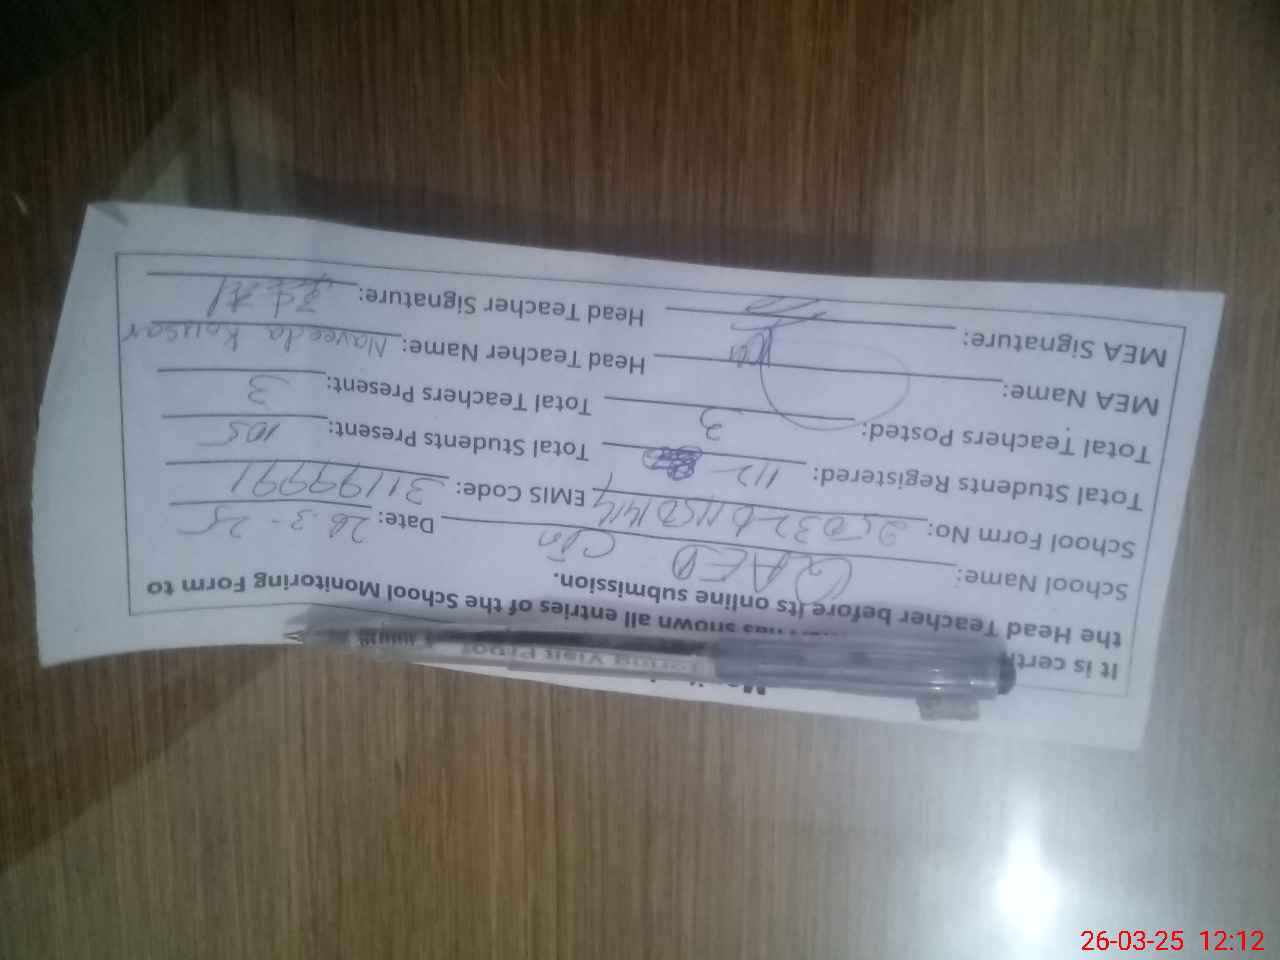 Monitoring Visit Proof
It is cert has shown all entries of the School Monitoring Form to
the Head Teacher before its online submission.
School Name: QAED Ctn Date: 26-3-25
School Form No: EMIS Code: 31199991
Total Students Registered: 112 Total Students Present: 105
Total Teachers Posted: 3 Total Teachers Present: 3
MEA Name: Head Teacher Name: Naveeda Kousar
MEA Signature: Head Teacher Signature:
26-03-25 12:12